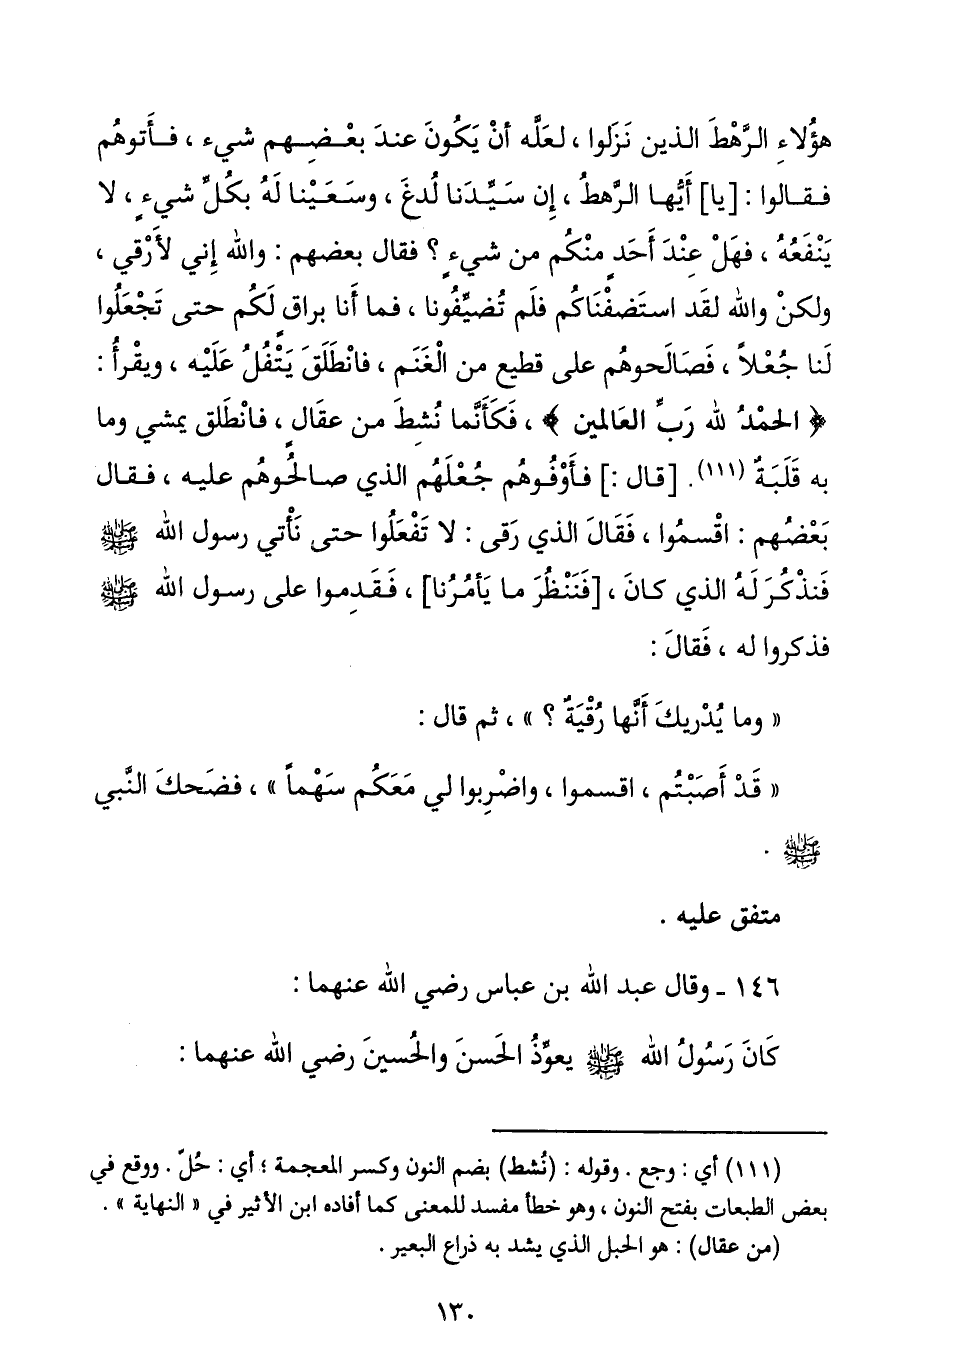 هؤُلاءِ الرَّهْطَ الذين نَزَلوا ، لعَلَّه أنْ يَكُونَ عندَ بعْضِهم شيء ، فأَتوهُم
فقالوا : [يا] أَيُّها الرَّهطُ ، إِن سَيِّدَنا لُدغَ ، وسَعَيْنا لَهُ بكُلِّ شيءٍ ، لا
يَنْفَعُهُ ، فهَلْ عِنْدَ أَحَدٍ منْكُم من شيءٍ ؟ فقال بعضهم : والله إِني لأَرْقي ،
ولكنْ والله لقَد استَضفْنَاكُم فلَم تُضيِّفُونا ، فما أَنا براقٍ لَكُم حتى تَجْعَلُوا
لَنا جُعْلاً ، فَصَالَحوهُم على قطيع من الْغَنَم ، فانْطَلَقَ يَتْفُلُ عَلَيْه ، ويقْرأُ :
﴿ الحمْدُ لله رَبِّ العَالمين ﴾ ، فَكَأَنَّما نُشطَ من عقَالٍ ، فانْطَلق يمشي وما
به قَلَبَةٌ (١١١). [قال :] فأَوْفُوهُم جُعْلَهُم الذي صالحُوهُم عليه ، فقال
بَعْضُهم : اقْسمُوا ، فَقَالَ الذي رَقى : لا تَفْعَلُوا حتى نَأْتي رسول الله ﷺ
فَنذْكُرَ لَهُ الذي كانَ ، [فَنَنْظُرَ ما يَأمُرُنا] ، فَقَدِموا على رسول الله ﷺ
فذكروا له ، فَقالَ :
« وما يُدْريكَ أَنَّها رُقْيَةٌ ؟ » ، ثم قال :
« قَدْ أَصَبْتُم ، اقسموا ، واضْرِبوا لي مَعَكُم سَهْماً » ، فضَحكَ النَّبي
ﷺ .
متفق عليه .
١٤٦ ـ وقال عبد الله بن عباس رضي الله عنهما :
كَانَ رَسُولُ الله ﷺ يعوِّذُ الحَسنَ والحُسينَ رضي الله عنهما :
(١١١) أي : وجع . وقوله : (نُشط) بضم النون وكسر المعجمة ؛ أي : حُلّ . ووقع في
بعض الطبعات بفتح النون ، وهو خطأ مفسد للمعنى كما أفاده ابن الأثير في « النهاية » .
(من عقال) : هو الحبل الذي يشد به ذراع البعير .
١٣٠